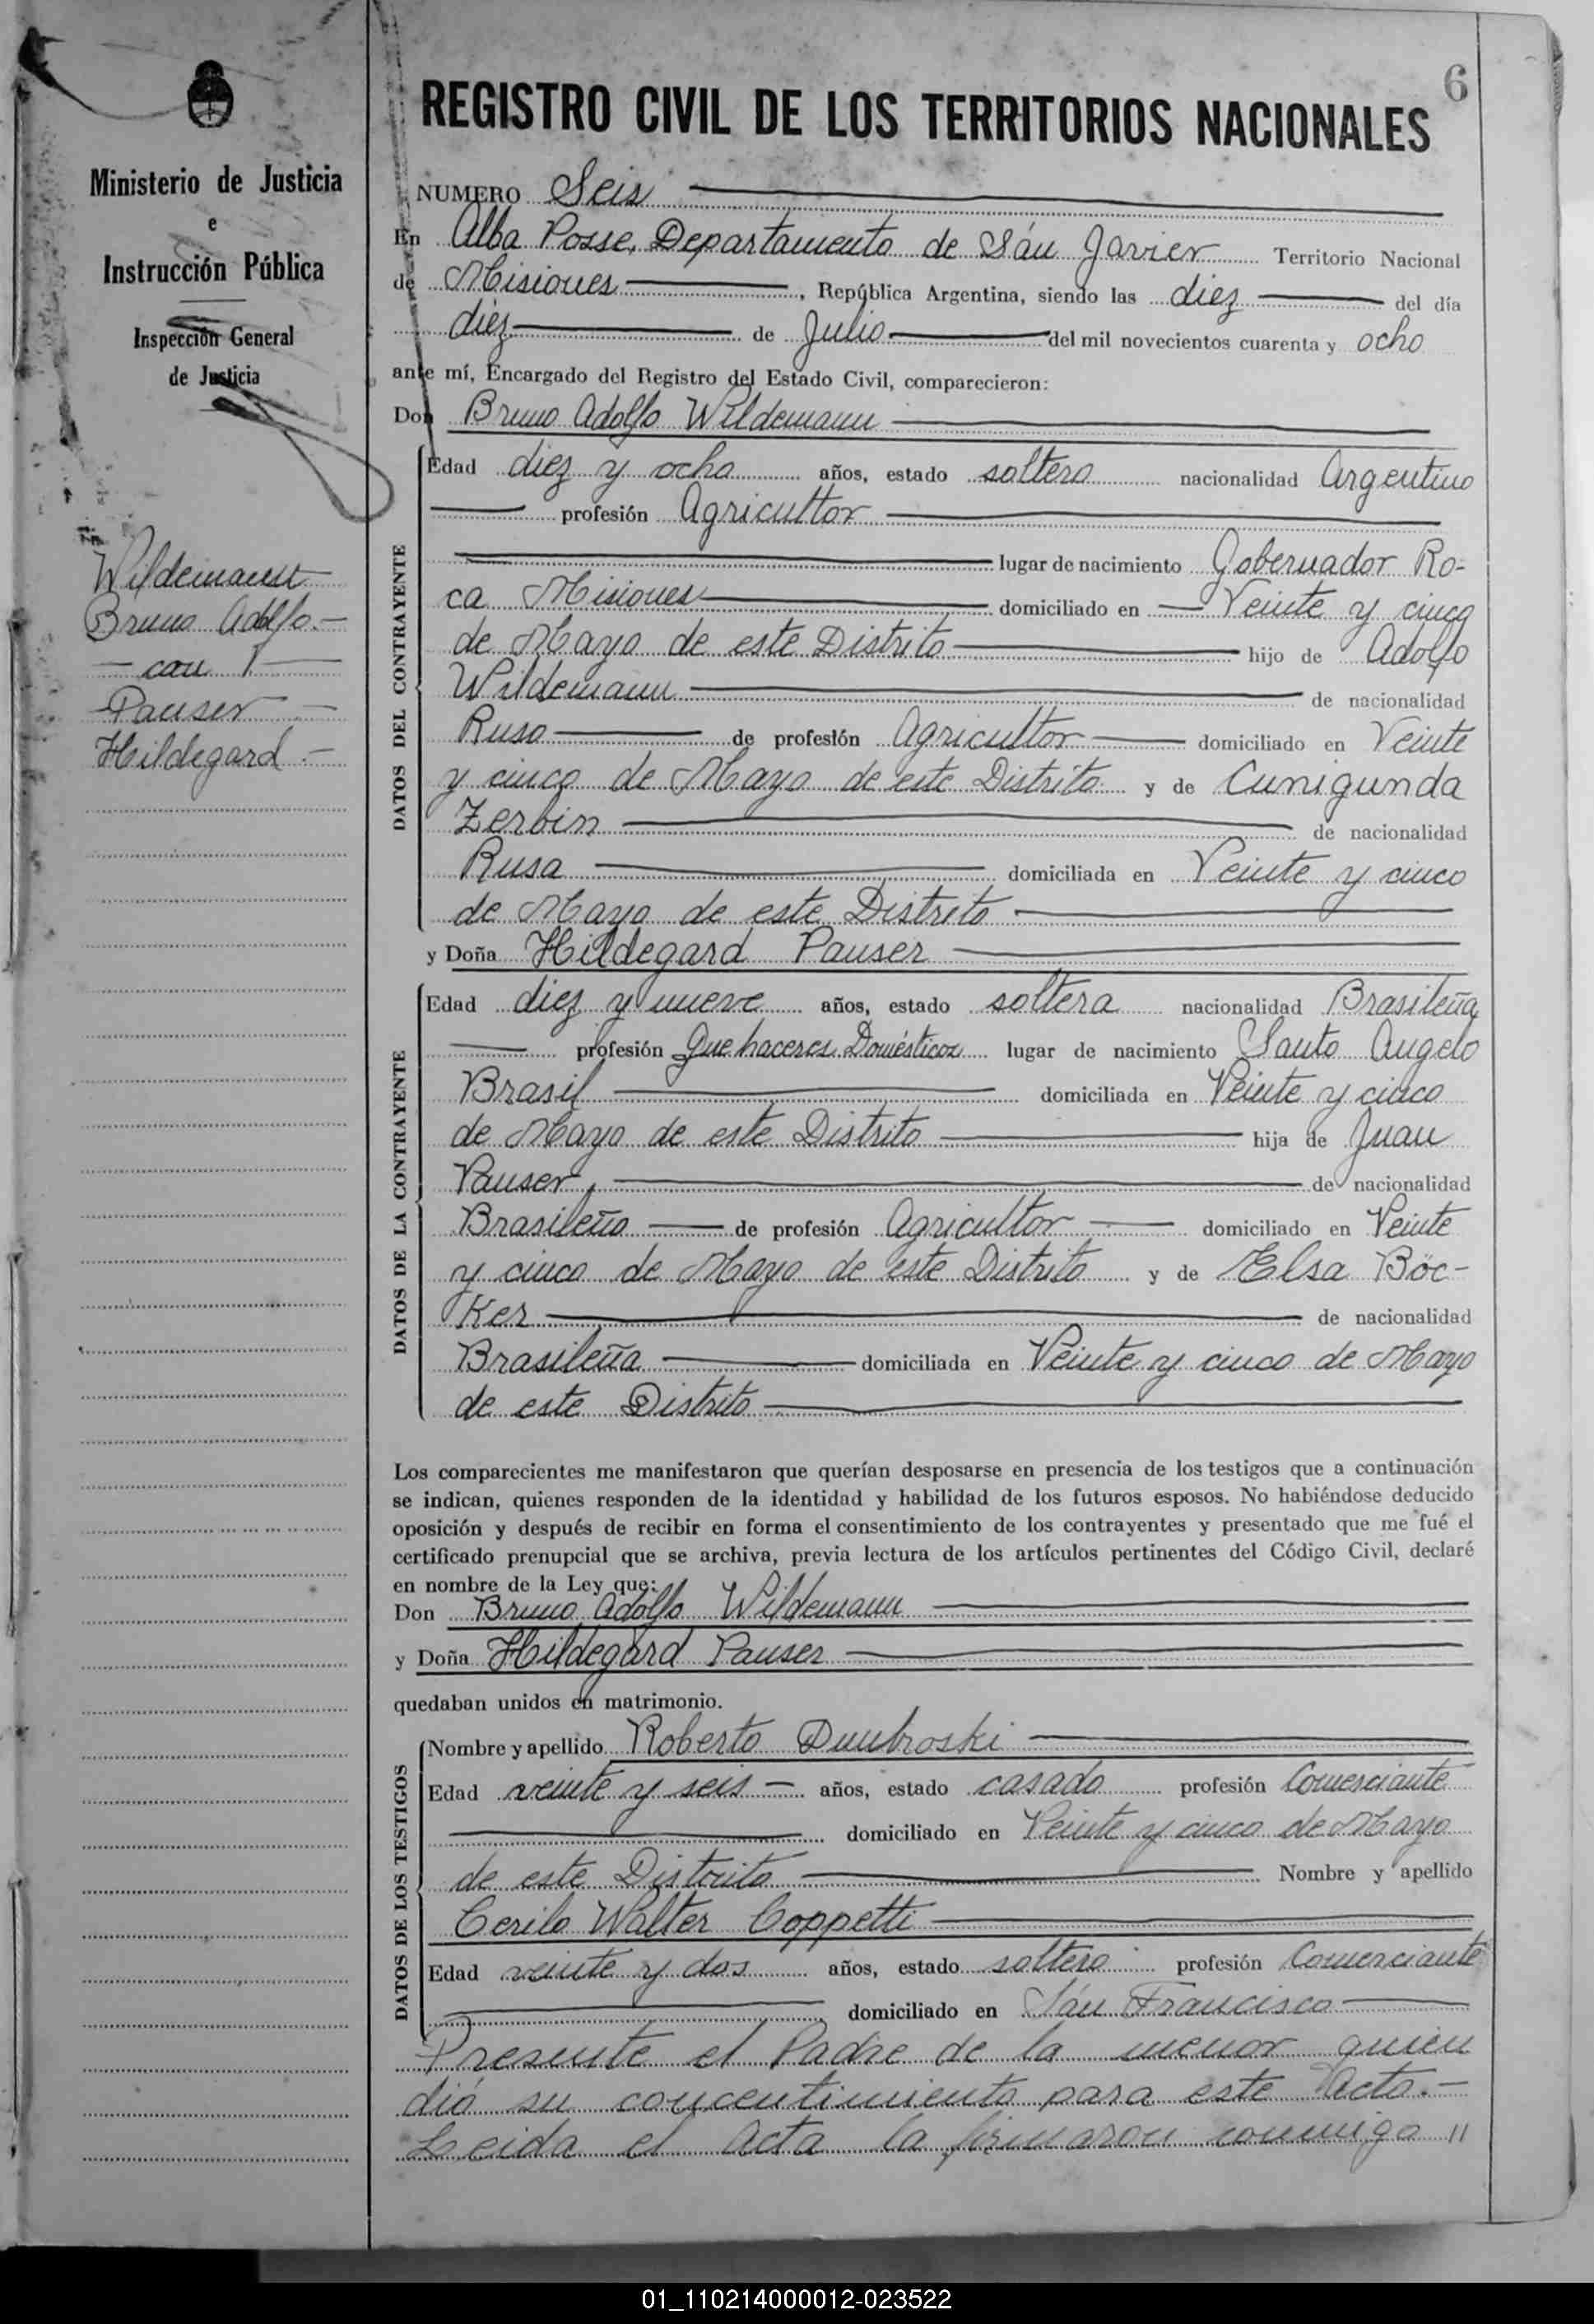 6
Ministerio de Justicia
e
Instrucción Pública
Inspección General
de Justicia
Wildemann
Bruno Adolfo.-
- con -
Pauser -
Hildegard.-
REGISTRO CIVIL DE LOS TERRITORIOS NACIONALES
NUMERO Seis
En Alba Posse, Departamento de Sán Javier Territorio Nacional
de Misiones, República Argentina, siendo las diez del día
diez de Julio del mil novecientos cuarenta y ocho
ante mí, Encargado del Registro del Estado Civil, comparecieron:
Don Bruno Adolfo Wildemann
DATOS DEL CONTRAYENTE
Edad diez y ocho años, estado soltero nacionalidad Argentino
profesión Agricultor
lugar de nacimiento Gobernador Ro-
ca Misiones domiciliado en Veinte y cinco
de Mayo de este Distrito hijo de Adolfo
Wildemann de nacionalidad
Ruso de profesión Agricultor domiciliado en Veinte
y cinco de Mayo de este Distrito y de Cunigunda
Zerbin de nacionalidad
Rusa domiciliada en Veinte y cinco
de Mayo de este Distrito
y Doña Hildegard Pauser
DATOS DE LA CONTRAYENTE
Edad diez y nueve años, estado soltera nacionalidad Brasileña
profesión Que haceres Domésticos lugar de nacimiento Santo Angelo
Brasil domiciliada en Veinte y cinco
de Mayo de este Distrito hija de Juan
Pauser, de nacionalidad
Brasileño de profesión Agricultor domiciliado en Veinte
y cinco de Mayo de este Distrito y de Elsa Böc-
Ker de nacionalidad
Brasileña domiciliada en Veinte y cinco de Mayo
de este Distrito
Los comparecientes me manifestaron que querían desposarse en presencia de los testigos que a continuación
se indican, quienes responden de la identidad y habilidad de los futuros esposos. No habiéndose deducido
oposición y después de recibir en forma el consentimiento de los contrayentes y presentado que me fué el
certificado prenupcial que se archiva, previa lectura de los artículos pertinentes del Código Civil, declaré
en nombre de la Ley que:
Don Bruno Adolfo Wildemann
y Doña Hildegard Pauser
quedaban unidos en matrimonio.
DATOS DE LOS TESTIGOS
Nombre y apellido Roberto Dumbroski
Edad veinte y seis - años, estado casado profesión Comerciante
domiciliado en Veinte y cinco de Mayo
de este Distrito Nombre y apellido
Cerilo Walter Coppetti
Edad veinte y dos años, estado soltero profesión Comerciante
domiciliado en Sán Francisco
Presente el Padre de la menor quien
dió su concentimiento para este Acto.-
Leida el Acta la firmaron conmigo "
01_110214000012-023522